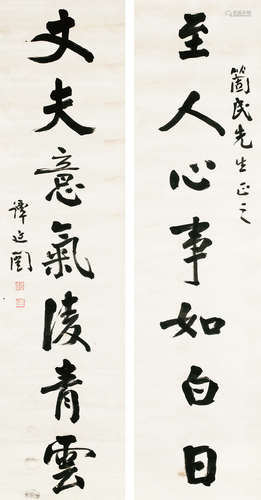 至人心事如白日
箇民先生正之
丈夫意氣淩青雲
譚延闓